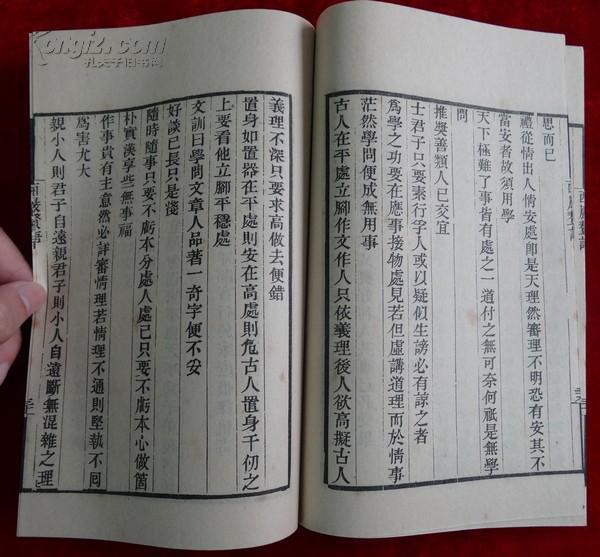 思而已
禮從情出人情安處卽是天理然審理不明恐有安其不
當安者故須用學
天下極難了事皆有處之一道付之無可奈何祇是無學
問
推獎善類人己交宜
士君子只要素行字人或以疑似生謗必有諒之者
爲學之功要在應事接物處見若但虛講道理而於情事
茫然學問便成無用事
古人在平處立腳作文作人只依義理後人欲高擬古人
義理不深只要求高做去便錯
置身如置器在平處則安在高處則危古人置身千仞之
上要看他立腳平穩處
文訓曰學問文章人品著一奇字便不安
好談己長只是淺
隨時隨事只要不虧本分處人處己只要不虧本心做箇
朴實漢享些無事福
作事貴有主意然必詳審情理若情理不通則堅執不囘
爲害尤大
親小人則君子自遠親君子則小人自遠斷無混雜之理
kongfz.com
孔夫子旧书网